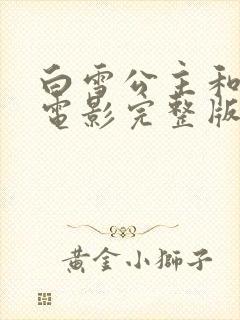 白雪公主和
電影完整版
黃金小獅子